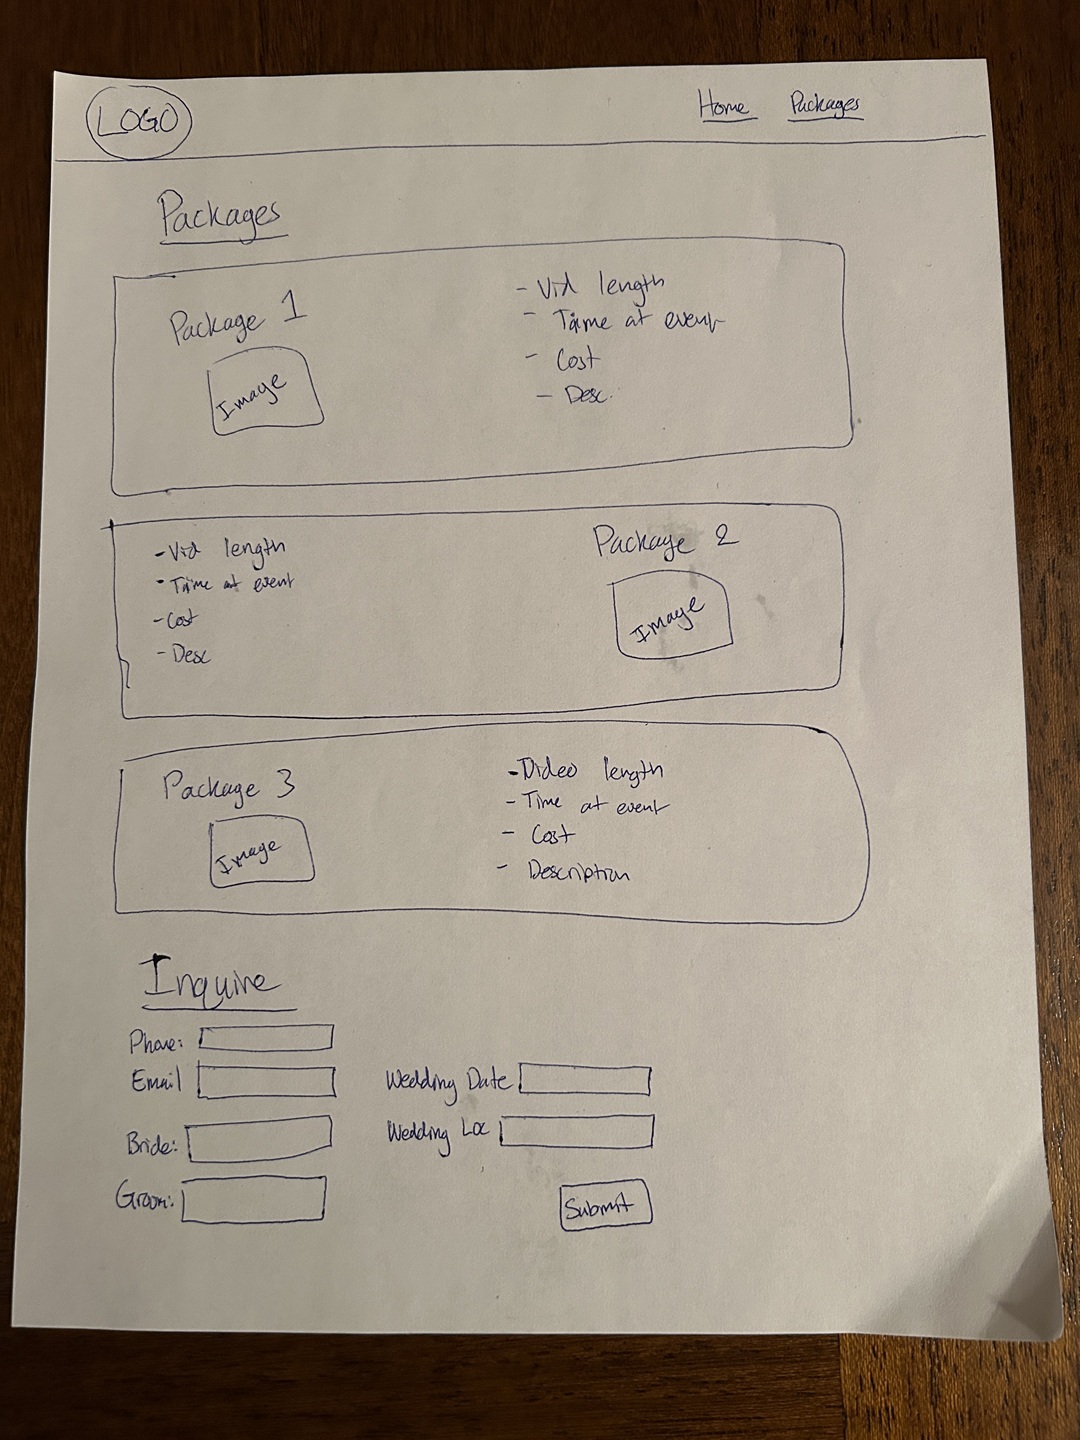 LOGO
Home Packages
Packages
Package 1
Image
- Vid length
- Time at event
- Cost
- Desc.
- Vid length
- Time at event
- Cost
- Desc
Package 2
Image
Package 3
Image
- Video length
- Time at event
- Cost
- Description
Inquire
Phone:
Email
Bride:
Groom:
Wedding Date
Wedding Loc
Submit